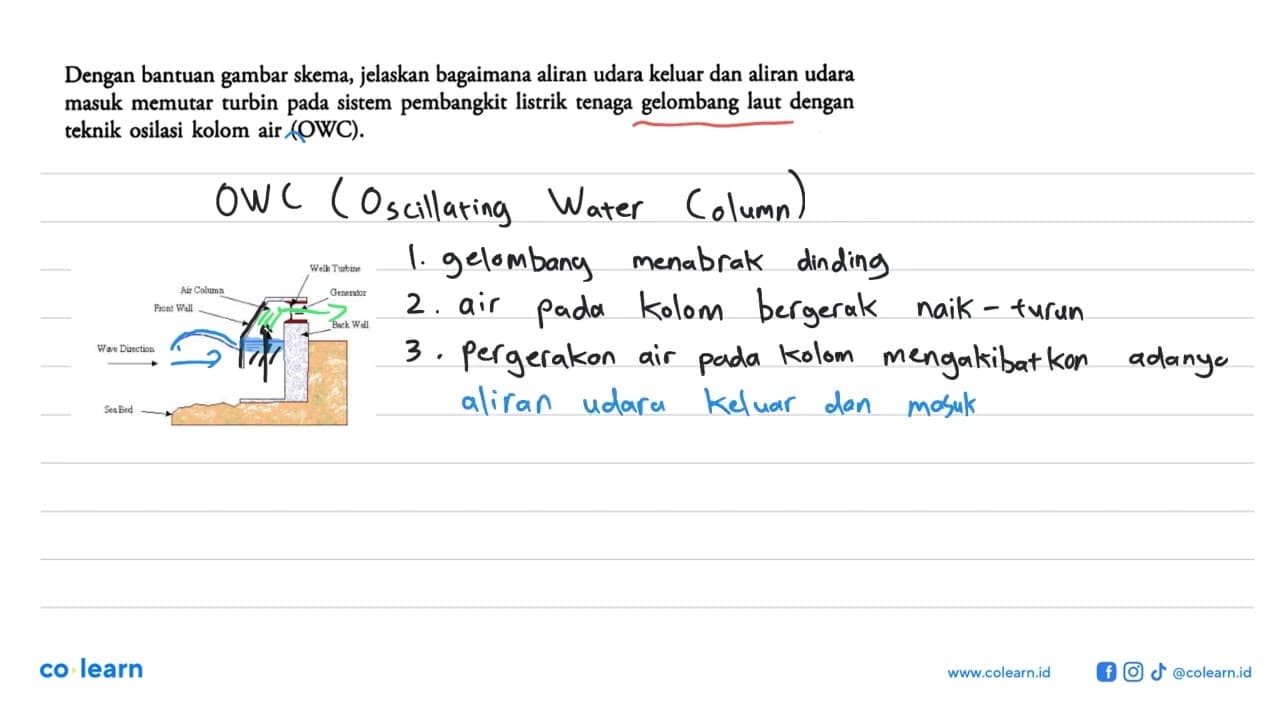 Dengan bantuan gambar skema, jelaskan bagaimana aliran udara keluar dan aliran udara
masuk memutar turbin pada sistem pembangkit listrik tenaga gelombang laut dengan
teknik osilasi kolom air (OWC).
OWC (Oscillating Water Column)
1. gelombang menabrak dinding
2. air pada kolom bergerak naik - turun
3. Pergerakan air pada kolom mengakibatkan adanya
aliran udara keluar dan masuk
Wells Turbine
Air Column
Generator
Front Wall
Back Wall
Wave Direction
Sea Bed
co learn
www.colearn.id
@colearn.id